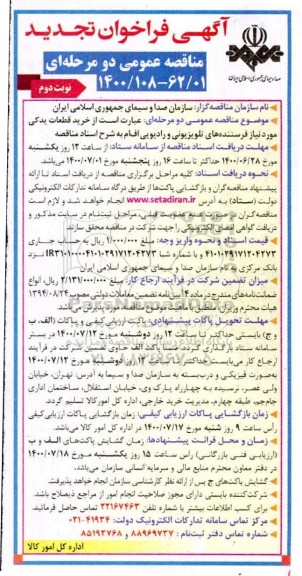 آگهی فراخوان تجدید
مناقصه عمومی دو مرحله‌ای
۱۴۰۰/۱۰۸-۶۲/۰۱
نوبت دوم
صدا و سیمای جمهوری اسلامی ایران
نام سازمان مناقصه‌گزار: سازمان صدا و سیمای جمهوری اسلامی ایران
موضوع مناقصه عمومی دو مرحله‌ای: عبارت است از خرید قطعات یدکی
مورد نیاز فرستنده‌های تلویزیونی و رادیویی افام به شرح اسناد مناقصه
مهلت دریافت اسناد مناقصه از سامانه ستاد: از ساعت ۱۲ روز یکشنبه
مورخ ۱۴۰۰/۰۶/۲۸ حداکثر تا ساعت ۱۶ روز پنجشنبه مورخ ۱۴۰۰/۰۷/۰۱ می‌باشد.
نحوه دریافت اسناد: کلیه مراحل برگزاری مناقصه از دریافت اسناد تا ارائه
پیشنهاد مناقصه‌گران و بازگشایی پاکت‌ها از طریق درگاه سامانه تدارکات الکترونیکی
دولت (ستاد) به آدرس www.setadiran.ir انجام خواهد شد و لازم است
مناقصه‌گران در صورت عدم عضویت قبلی، مراحل ثبت‌نام در سایت مذکور و
دریافت گواهی امضای الکترونیکی را جهت شرکت در مناقصه محقق سازند.
قیمت اسناد و نحوه واریز وجه: مبلغ ۱/۰۰۰/۰۰۰ ریال به حساب جاری
بانک مرکزی به نام سازمان صدا و سیمای جمهوری اسلامی ایران
میزان تضمین شرکت در فرآیند ارجاع کار: مبلغ ۲/۱۳۱/۰۰۰/۰۰۰ ریال، انواع
ضمانت‌نامه‌های مندرج در ماده ۴ آیین‌نامه تضمین معاملات دولتی مصوب ۱۳۹۴/۰۸/۲۴
هیأت محترم وزیران منطبق با ماهیت موضوع مناقصه، مورد پذیرش می‌باشد.
مهلت تحویل پاکات پیشنهادی: پاکت ارزیابی کیفی و پاکات (الف، ب
و ج) بایستی حداکثر تا ساعت ۱۲ روز دوشنبه مورخ ۱۴۰۰/۰۷/۱۲ در بستر
سامانه ستاد بارگذاری گردد. ضمناً پاکت الف حاوی تضمین شرکت در فرآیند
ارجاع کار می‌بایست حداکثر تا ساعت روز دوشنبه مورخ ۱۴۰۰/۰۷/۱۲
به‌صورت فیزیکی و دربسته به سازمان صدا و سیما به آدرس: تهران، خیابان
ولی عصر، نرسیده به چهارراه پارک وی، خیابان استقلال، ساختمان اداری
جام‌جم، طبقه چهارم، مدیریت خرید خارجی، اداره کل امورکالا تسلیم گردد.
زمان بازگشایی پاکات ارزیابی کیفی: زمان بازگشایی پاکات ارزیابی کیفی
رأس ساعت ۹ روز شنبه مورخ ۱۴۰۰/۰۷/۱۷ در اداره کل امور کالا می‌باشد.
زمان و محل قرائت پیشنهادها: زمان گشایش پاکت‌های الف و ب
(ارزیابی فنی بازرگانی) رأس ساعت ۱۵ روز یکشنبه مورخ ۱۴۰۰/۰۷/۱۸
در دفتر معاون محترم منابع مالی و سرمایه انسانی سازمان می‌باشد.
گشایش پاکت‌های ج پس از ارائه نظر کارشناسی سازمان انجام خواهد پذیرفت.
شرکت‌کننده بایستی دارای مجوز صلاحیت انجام امور از مراجع ذیصلاح باشد.
برای کسب اطلاعات بیشتر با شماره تلفن ۲۲۱۶۷۴۶۳ تماس حاصل فرمائید.
مرکز تماس سامانه تدارکات الکترونیک دولت: ۰۲۱-۴۱۹۳۴
شماره تماس دفتر ثبت‌نام: ۸۸۹۶۹۷۳۷ و ۸۵۱۹۳۷۶۸
اداره کل امور کالا